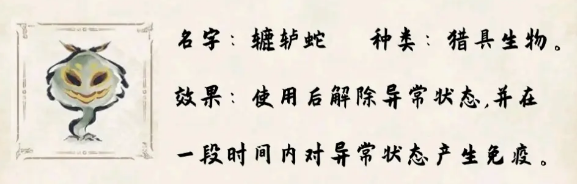 名字：辘轳蛇 种类：猎具生物。
效果：使用后解除异常状态,并在
一段时间内对异常状态产生免疫。